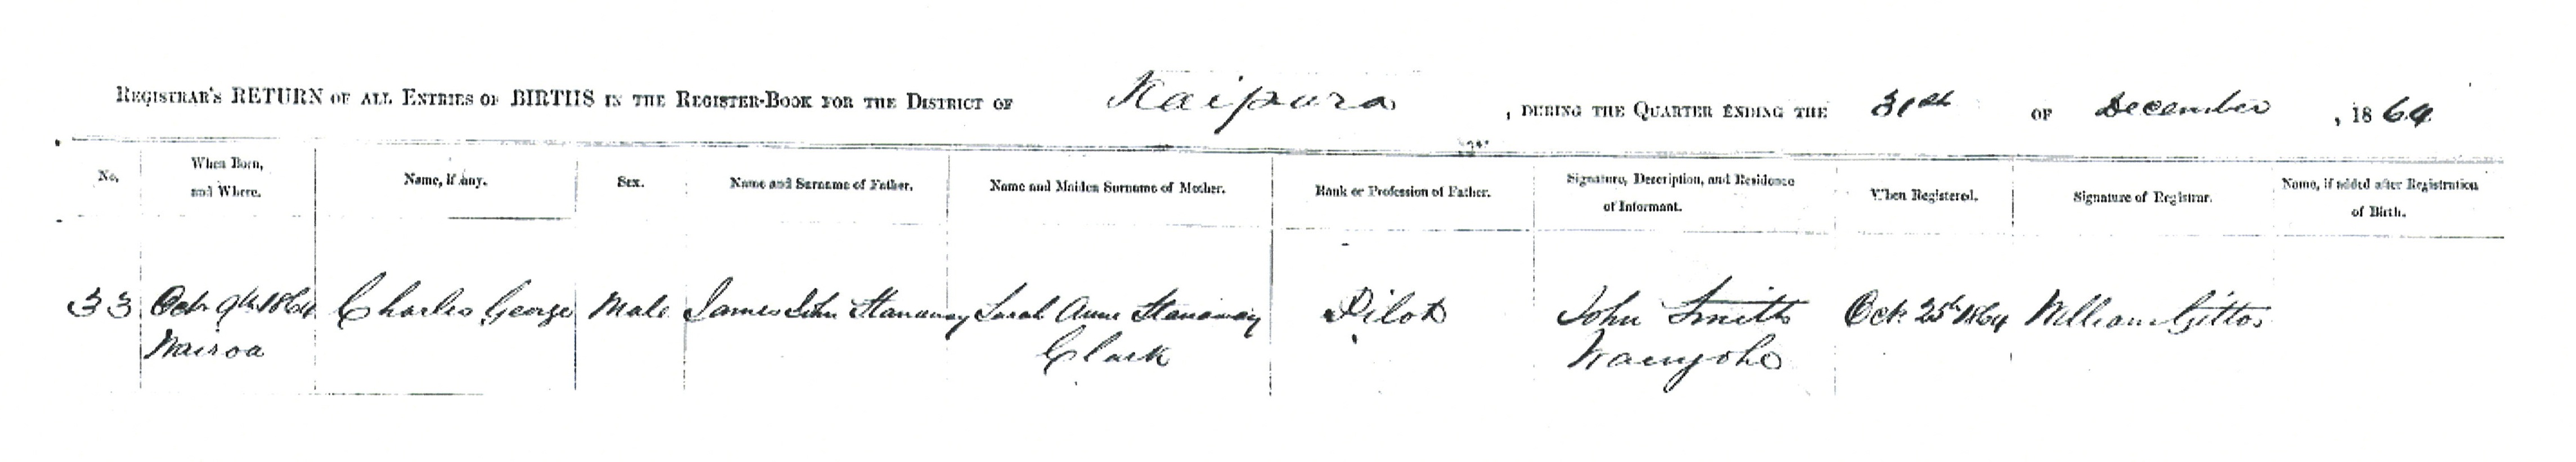 REGISTRAR'S RETURN OF ALL ENTRIES OF BIRTHS IN THE REGISTER-BOOK FOR THE DISTRICT OF Kaipara, DURING THE QUARTER ENDING THE 31st OF December, 1864
No.
When Born,
and Where.
Name, if any.
Sex.
Name and Surname of Father.
Name and Maiden Surname of Mother.
Rank or Profession of Father.
Signature, Description, and Residence
of Informant.
When Registered.
Signature of Registrar.
Name, if added after Registration
of Birth.
33
Octr 9th 1864
Wairoa
Charles George
Male
James John Stanaway
Sarah Anne Stanaway
Clark
Pilot
John Smith
Octr 25th 1864
William Gittos